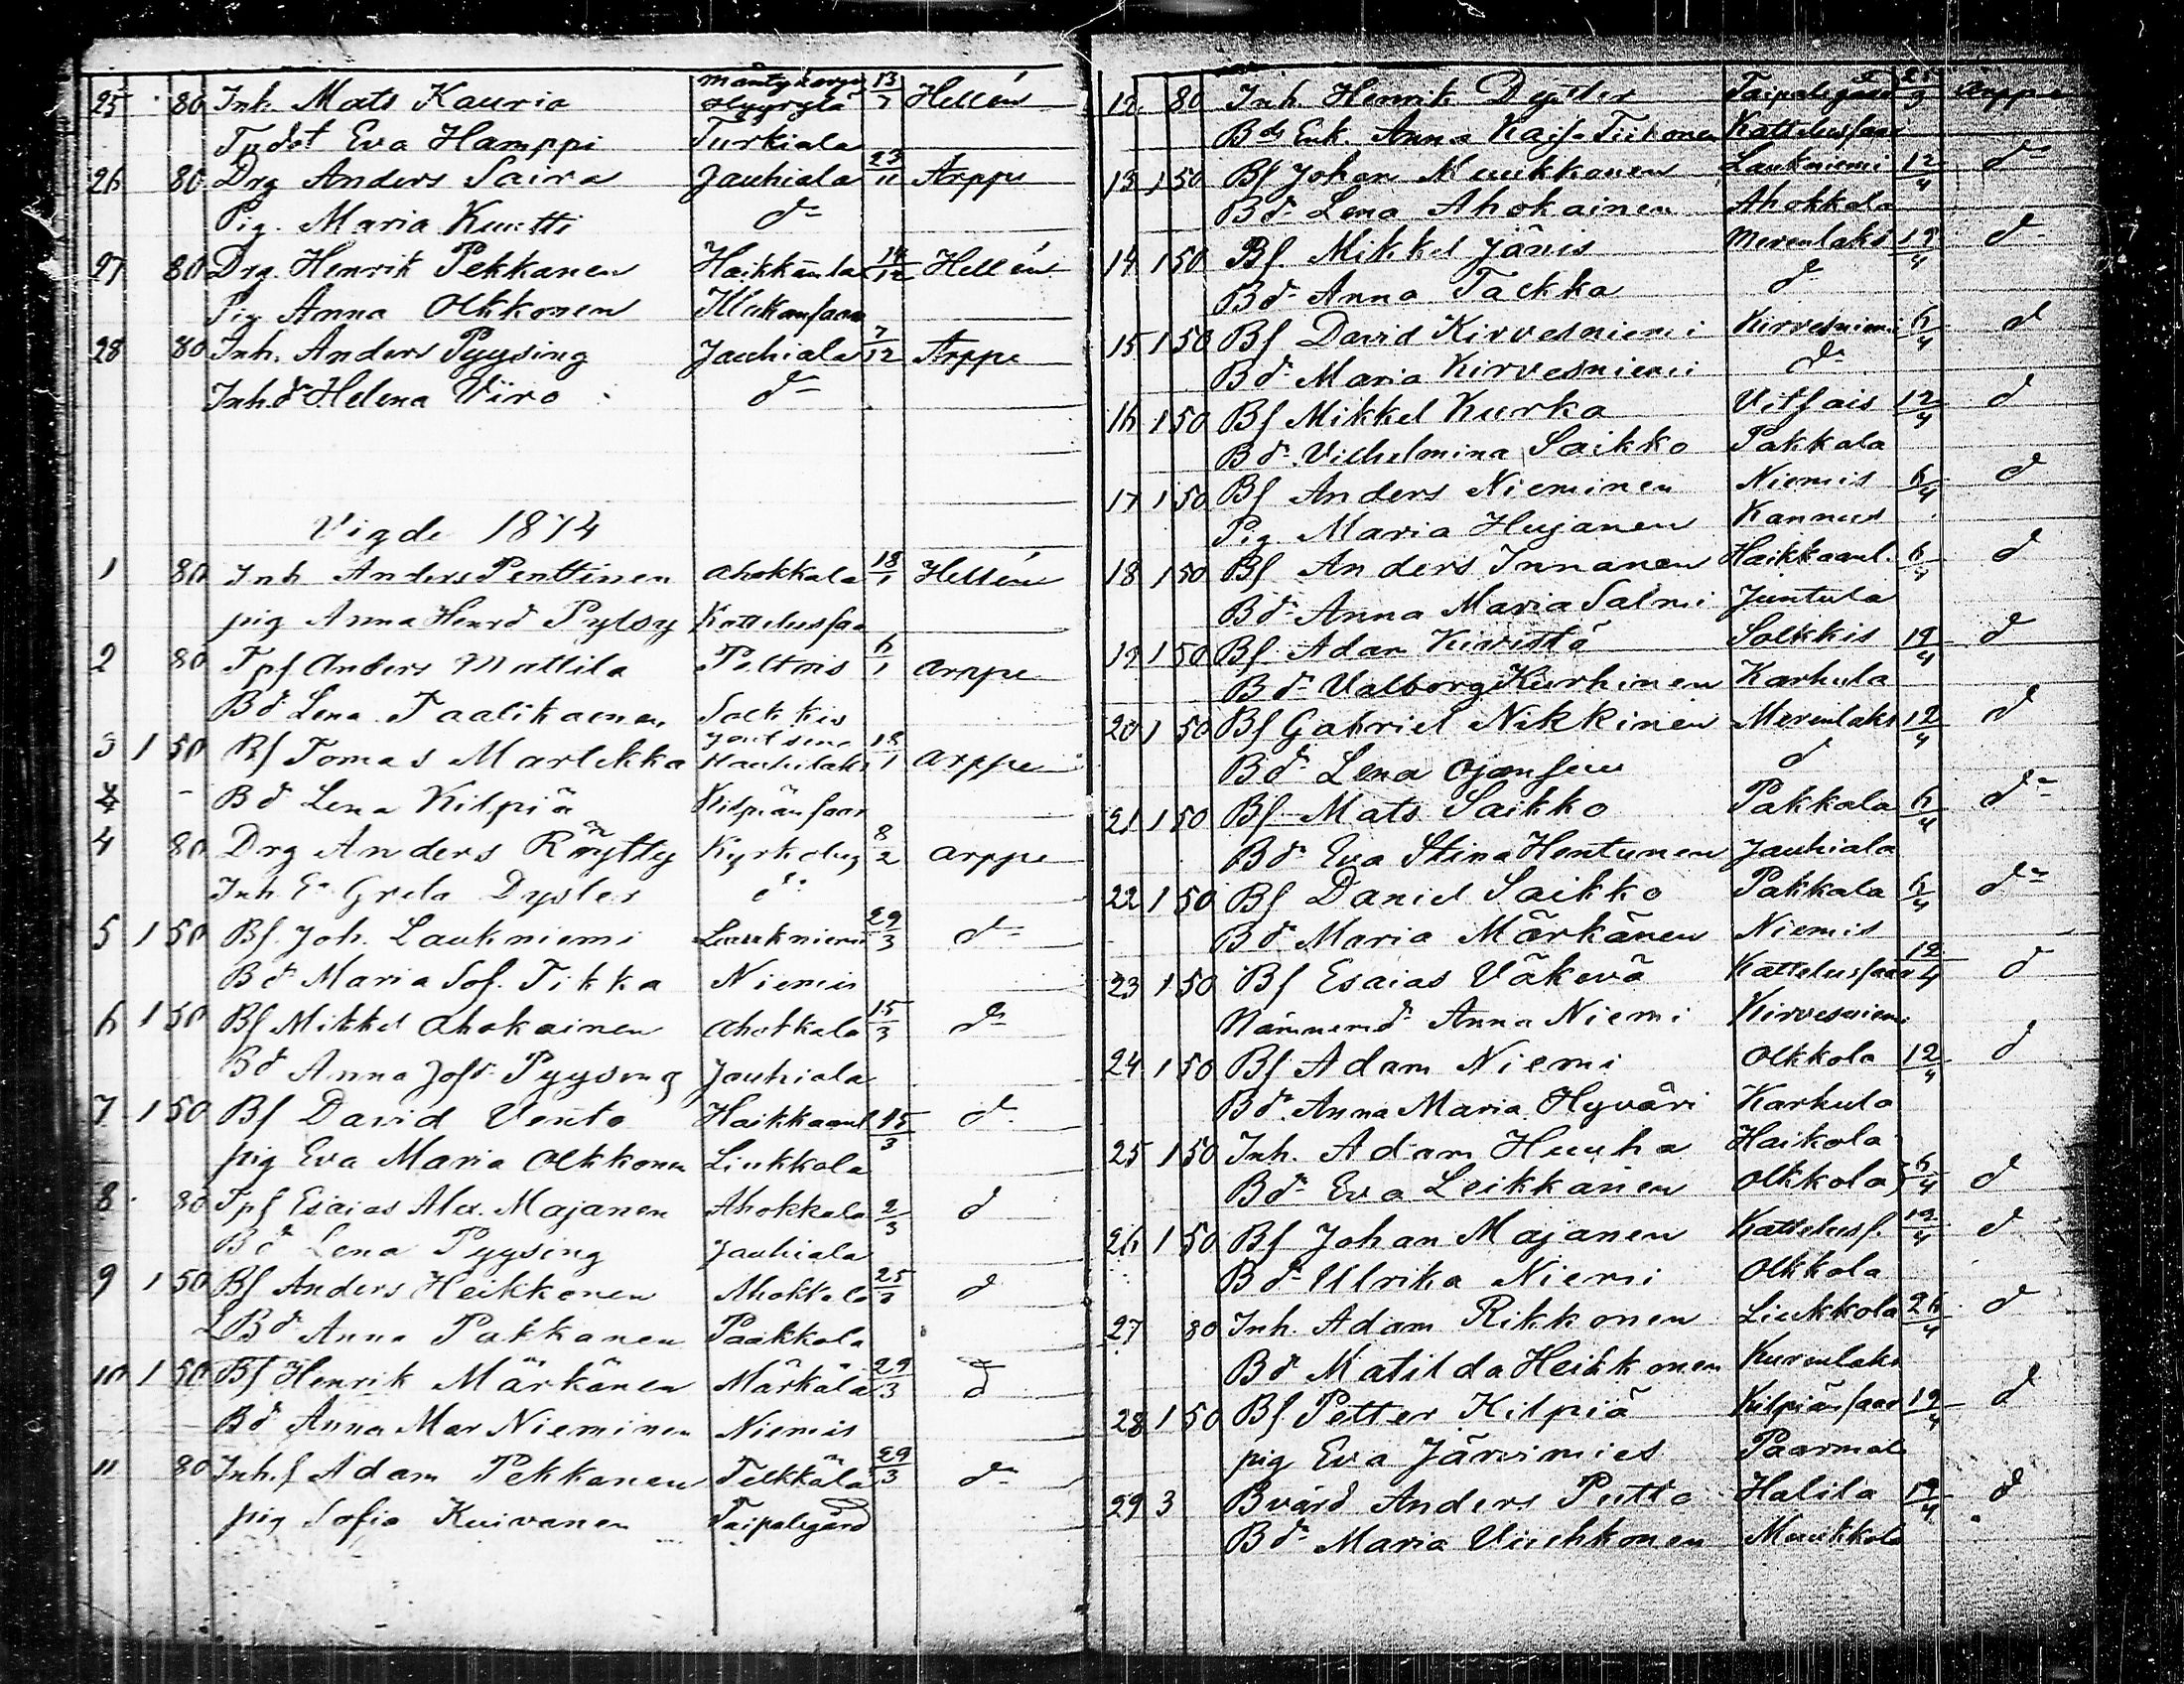 25 80 Inh. Mats Kauria Hyyrylä 13/7 Hellén
Eva Hamppi Turkiala
26 80 Drg Anders Saira Jauhiala 23/11 Arppe
Pig. Maria Kuutti d:o
27 80 Drg. Henrik Pekkanen Haikkanla 14/12 Hellén
Pig Anna Olkkonen
28 80 Inh. Anders Pyysing Jauhiala 7/12 Arppe
Inh.d:r Helena Viro d:o
Vigde 1874
1 80 Inh Anders Penttinen Ahokkala 18/1 Hellén
pig Anna Henrd Pylsy Kattelusaa
2 80 Tpf Anders Mattila Peltois 6/1 Arppe
Bd Lena Taalikainen Solkkis
3 1 50 Bf Tomas Martikka 18/1 Arppe
Bd Lena Kilpiä Kilpiänsaar
4 80 Drg Anders Röytty Kyrkoby 8/2 Arppe
Inh E. Greta Dyster d:o
5 1 50 Bf. Joh. Laukniemi Laukniemi 29/3 d:o
Bd Maria Sof. Tikka Niemis
6 1 50 Bf Mikkel Ahokainen Ahokkala 15/3 d:o
Bd Anna Josd:r Pyysing Jauhiala
7 1 50 Bf David Vento Haikkaanl 15/3 d:o
pig Eva Maria Olkkonen Liukkola
8 80 Tpf Esaias Alex. Majanen Ahokkala 2/3 d
Bd Lena Pyysing Jauhiala
9 1 50 Bf Anders Heikkonen Ahokkala 25/3 d
Bd Anna Pakkanen Paakkola
10 1 50 Bf Henrik Märkänen Märkälä 29/3 d
Bd Anna Mar Nieminen Niemis
11 80 Inh.f Adam Pekkanen Telkkälä 29/3 d:o
pig Sofia Kuivanen Taipalegård
12 80 Inh Henrik Dyster Taipalegård 25/3 Arppe
Bds Enk. Anna Kajsa Tiikonen Kattelusaar
13 1 50 Bf Johan Muukkonen Laukniemi 12/4 d:o
Bd:r Lena Ahokainen Ahokkala
14 1 50 Bf. Mikkel Jänis Merenlaks 12/4 d
Bd:r Anna Tackka d
15 1 50 Bf David Kirvesniemi Kirvesniemi 6/4 d
Bd:r Maria Kirvesniemi d:o
16 1 50 Bf Mikkel Kurka Vitsais 12/4 d
Bd:r Vilhelmina Saikko Pakkala
17 1 50 Bf Anders Nieminen Niemis 6/4 d
Pig. Maria Hujanen Kannus
18 1 50 Bf Anders Innanen Haikkaanl. 6/4 d
Bd:r Anna Maria Salmi Juntula
19 1 50 Bf. Adam Kivistö Solkkis 12/4 d
Bd:r Valborg Kurhinen Karhula
20 1 50 Bf Gabriel Nikkinen Merenlaks 12/4 d
Bd:r Lena Ojansuu d
21 1 50 Bf Mats Saikko Pakkala 6/4 d:o
Bd:r Eva Stina Hentunen Jauhiala
22 1 50 Bf Daniel Saikko Pakkala 6/4 d:o
Bd:r Maria Märkänen Niemis
23 1 50 Bf Esaias Väkevä Kattelusaar 12/4 d
Nämnemd:r Anna Niemi Kirvesniemi
24 1 50 Bf Adam Niemi Olkkola 12/4 d
Bd:r Anna Maria Hyväri Karhula
25 1 50 Inh. Adam Huuha Haikola
Bd:r Eva Leikkänen Olkkola 6/4 d
26 1 50 Bf Johan Majanen Kattelusf. 12/4 d
Bd:r Ulrika Niemi Olkkola
27 80 Inh. Adam Rikkonen Liukkola 26/4 d
Bd Matilda Heikkonen Kurenlaks
28 1 50 Bf. Petter Kilpiä Kilpiänsaar 19/4 d
pig Eva Järvimies Paarmal
29 3 Bvärd Anders Putto Halila 19/4 d
Bd:r Maria Vuohkonen Muukkola